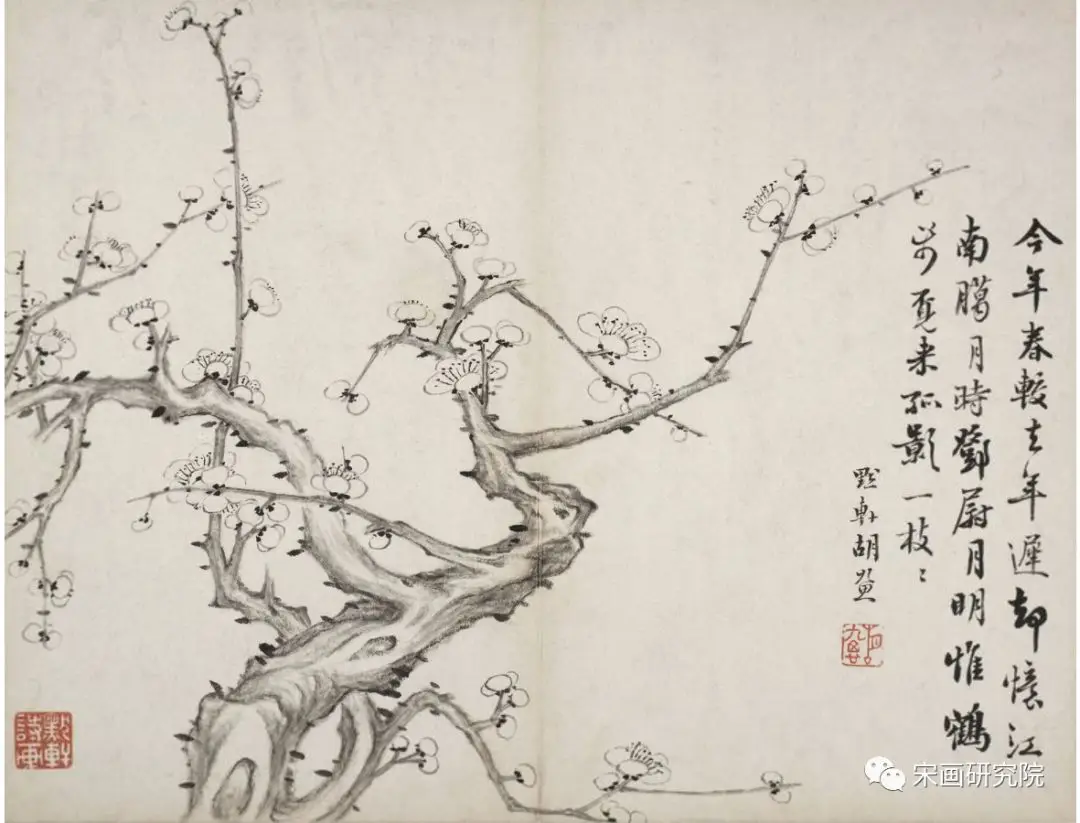 今年春較去年遲却憶江
南臈月時鄧尉月明惟鶴
步覓来孤影一枝〻
默軒胡
宋画研究院